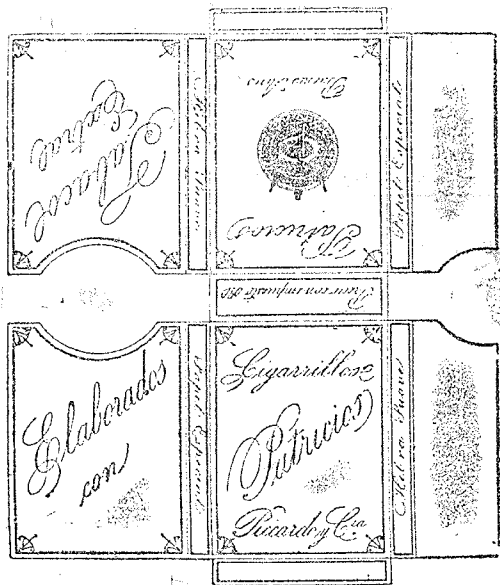 Tabacos
Extras
Hebra Suave
Buenos Aires
Patricios
Papel Especial
con impuesto
Elaborados
con
Papel Especial
Cigarrillos
Patricios
Ricardo y Cia
Hebra Suave